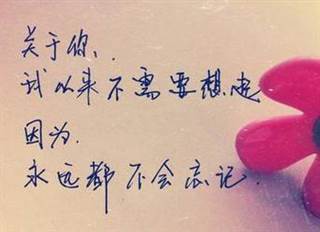 关于你、.
我从来不需要想起
因为.
永远都不会忘记.